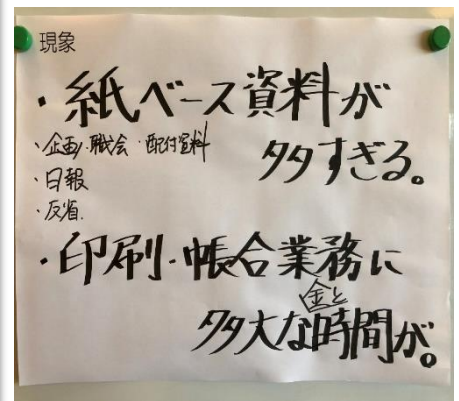 現象
・紙ベース資料が
多すぎる。
・企画・職会・配付資料
・日報
・反省.
・印刷・帳合業務に
金と
多大な時間が。